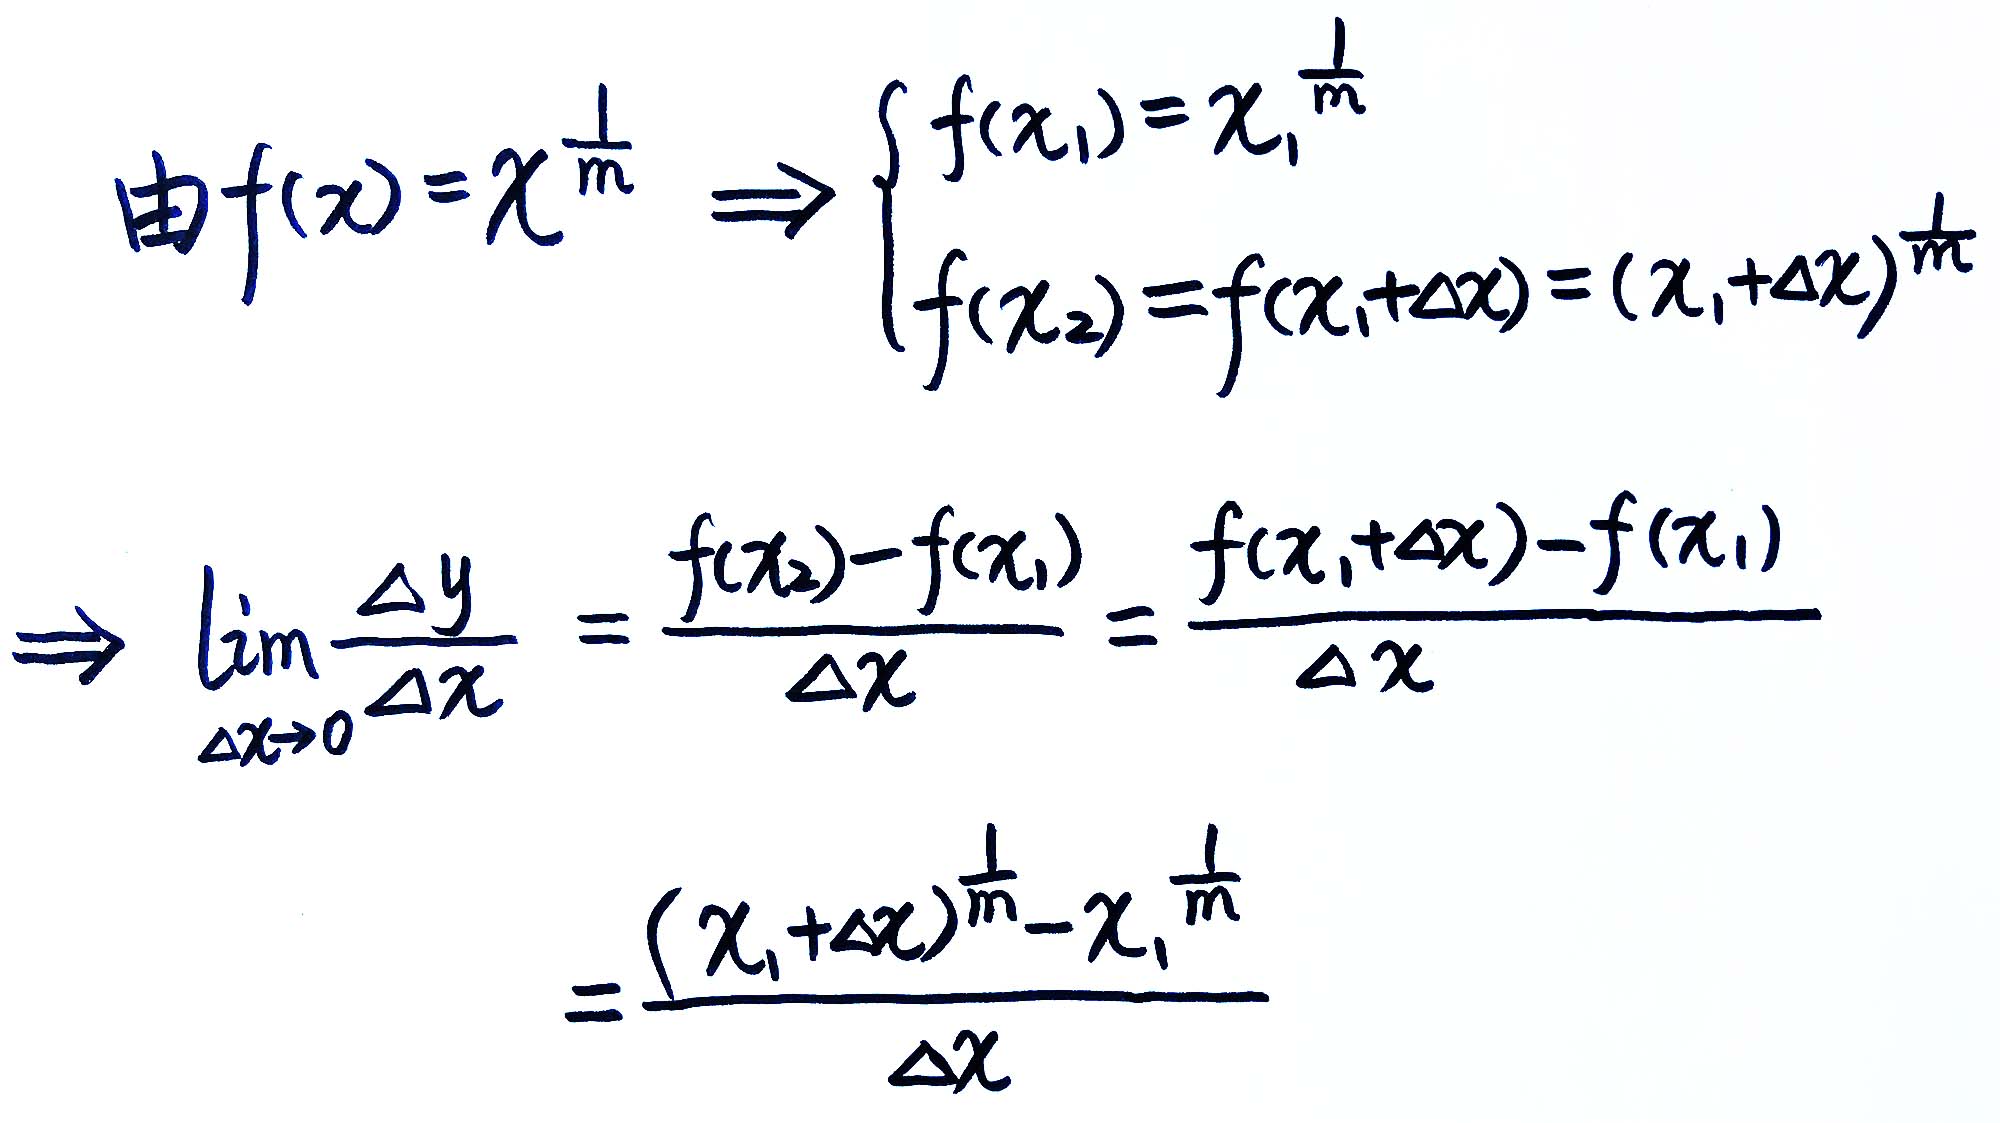 由 $f(x) = x^{\frac{1}{m}} \Rightarrow \begin{cases} f(x_1) = x_1^{\frac{1}{m}} \\ f(x_2) = f(x_1 + \Delta x) = (x_1 + \Delta x)^{\frac{1}{m}} \end{cases}$
$\Rightarrow \lim_{\Delta x \to 0} \frac{\Delta y}{\Delta x} = \frac{f(x_2) - f(x_1)}{\Delta x} = \frac{f(x_1 + \Delta x) - f(x_1)}{\Delta x}$
$= \frac{(x_1 + \Delta x)^{\frac{1}{m}} - x_1^{\frac{1}{m}}}{\Delta x}$